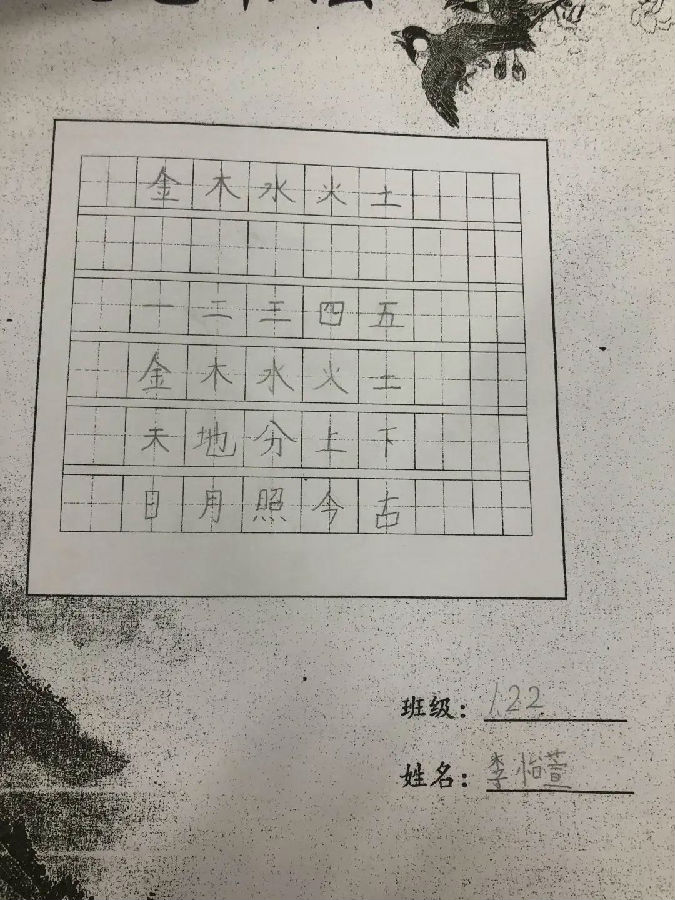 金木水火土
一二三四五
金木水火土
天地分上下
日月照今古
班级：1.22
姓名：李怡萱